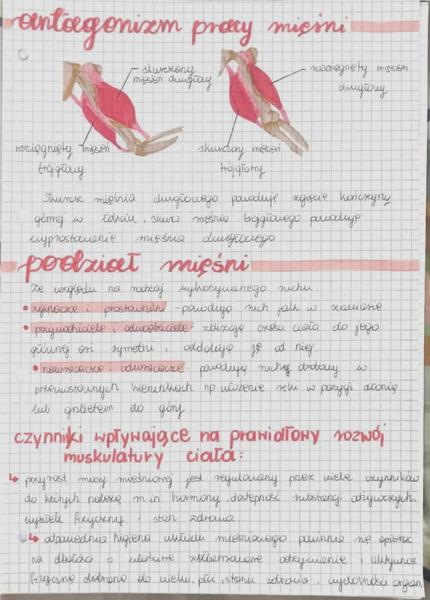 antagonizm pracy mięśni
skurczony
mięsień dwugłowy
rozciągnięty mięsień
dwugłowy
rozciągnięty mięsień
trójgłowy
skurczony mięsień
trójgłowy
Skurcz mięśnia dwugłowego powoduje zgięcie kończyny
górnej w łokciu, skurcz mięśnia trójgłowego powoduje
wyprostowanie mięśnia dwugłowego
podział mięśni
ze względu na rodzaj wykonywanego ruchu
• zginacze i prostowniki - powodują ruch jak w zawiasie
• przywodziciele i odwodziciele - zbliżają części ciała do jego
głównej osi symetrii, oddalają je od niej
• nawracacze i odwracacze - powodują ruchy obrotowy w
przeciwstawnych kierunkach np ułożenie ręki w pozycji dłonią
lub grzbietem do góry
czynniki wpływające na prawidłowy rozwój
muskulatury ciała:
↳ przyrost masy mięśniowej jest regulowany przez wiele czynników
do których należą m.in hormony, dostępność substancji odżywczych,
wysiłek fizyczny i stan zdrowia
↳ odpowiednia higiena układu mięśniowego powinna się opierać
na dbałości o właściwe zbilansowane odżywianie i aktywność
fizyczną dobraną do wieku, płci, stanu zdrowia i wydolności organ